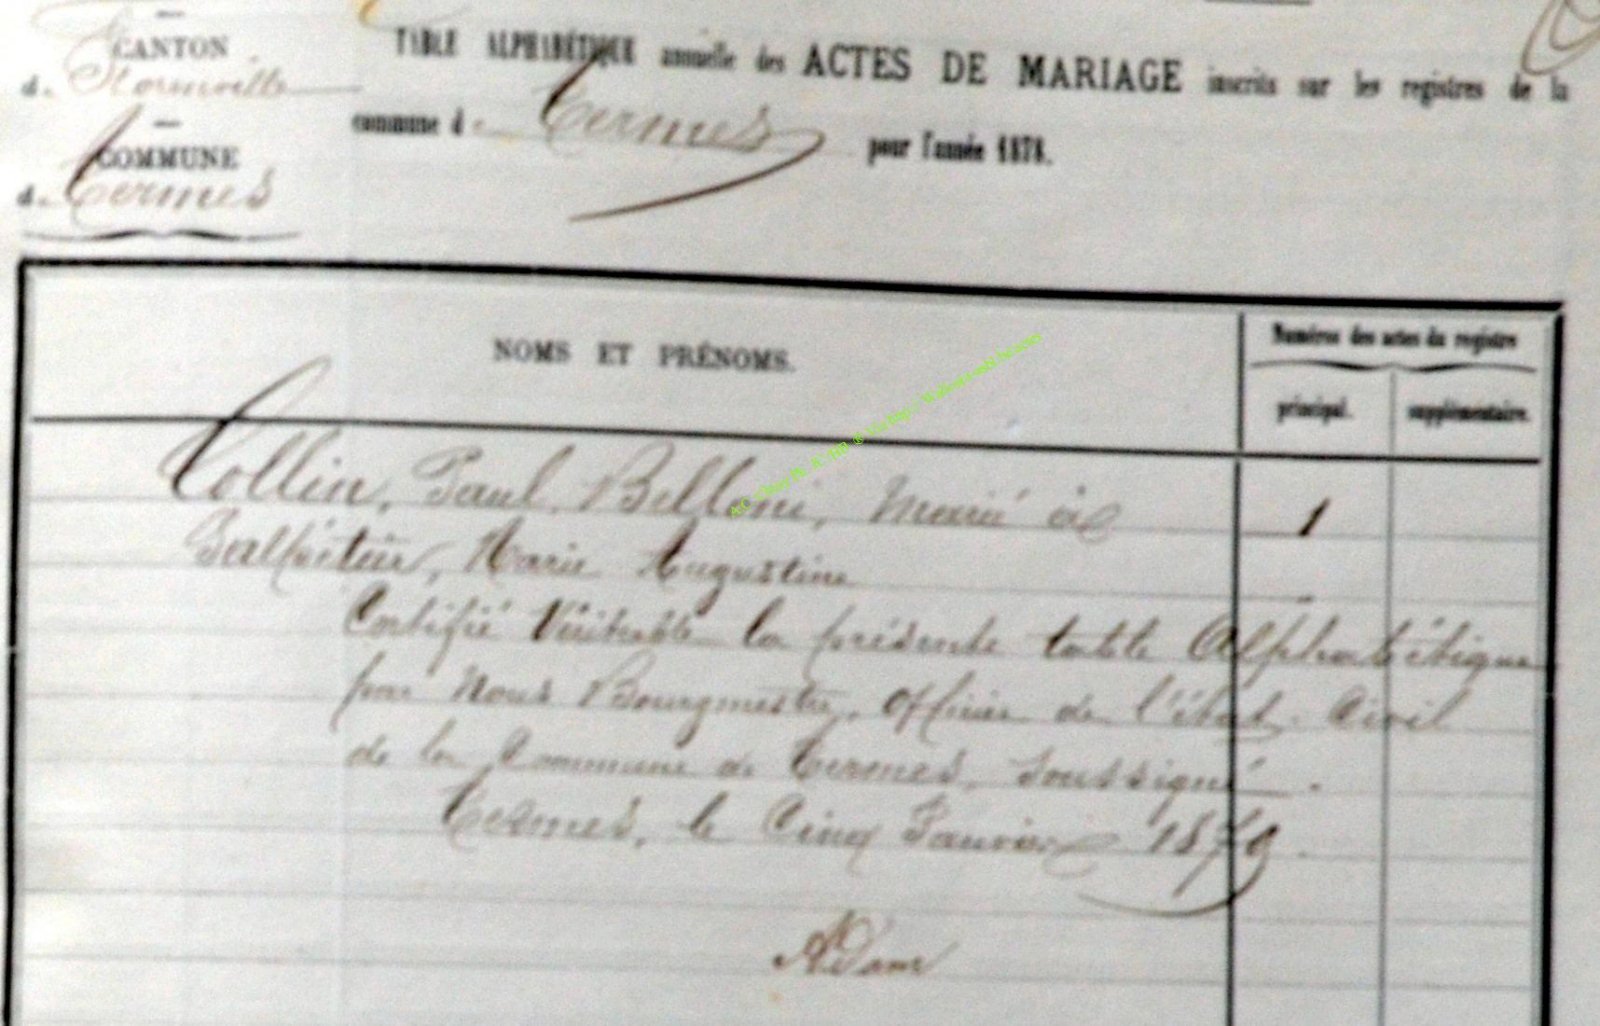 CANTON
d. Florenville
COMMUNE
d. Termes
TABLE ALPHABÉTIQUE annuelle des ACTES DE MARIAGE inscrits sur les registres de la
commune d e Termes pour l'année 1878.
NOMS ET PRÉNOMS.
Numéros des actes du registre
principal. supplémentaire.
Collin, Paul, Belloni, Marié à 1
Marie Augustine
Certifié Véritable la présente table Alphabétique
par Nous Bourgmestre, officier de l'état. Civil
de la Commune de Termes, soussigné.
Termes, le Cinq Janvier 1879.
Adam